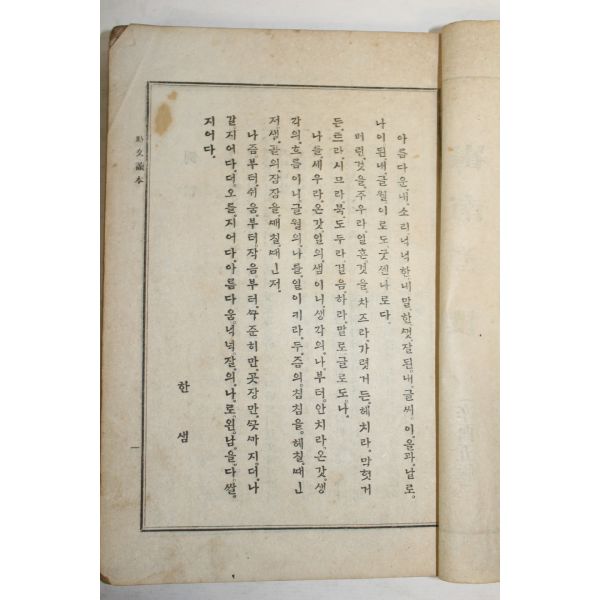 아름다운.내.소리.넉넉한.내말.한껏.잘된.내.글씨.이.올과.날로.
나이된.내.글월.이로도.굿센.나로다.
버린.것을.주우라.일흔.것을.차즈라.가렷거든.헤치라.막혓거
든.트라.시므라.북도두라.걸음.하라.말로.글로도.나.
나를.세우라.온갖.일의.샘이니.생각의.나부터.안치라.온갖.생
각의.흐름이니.글월의.나를.일이키라.두.즘의.침침을.헤칠.때ㅣㄴ
저.생.골의.잠잠을.깨칠.때ㅣㄴ저.
나즘부터.쉬움부터.작음부터.ᄭᅮ준히만.곳장만.ᄭᅳᆺᄭᅡ지.더.나
갈지어다.더.오를지어다.아름다움.넉넉.잘의.나로.왼.남을.다.쌀
지어다.
한샘
時文讀本
一